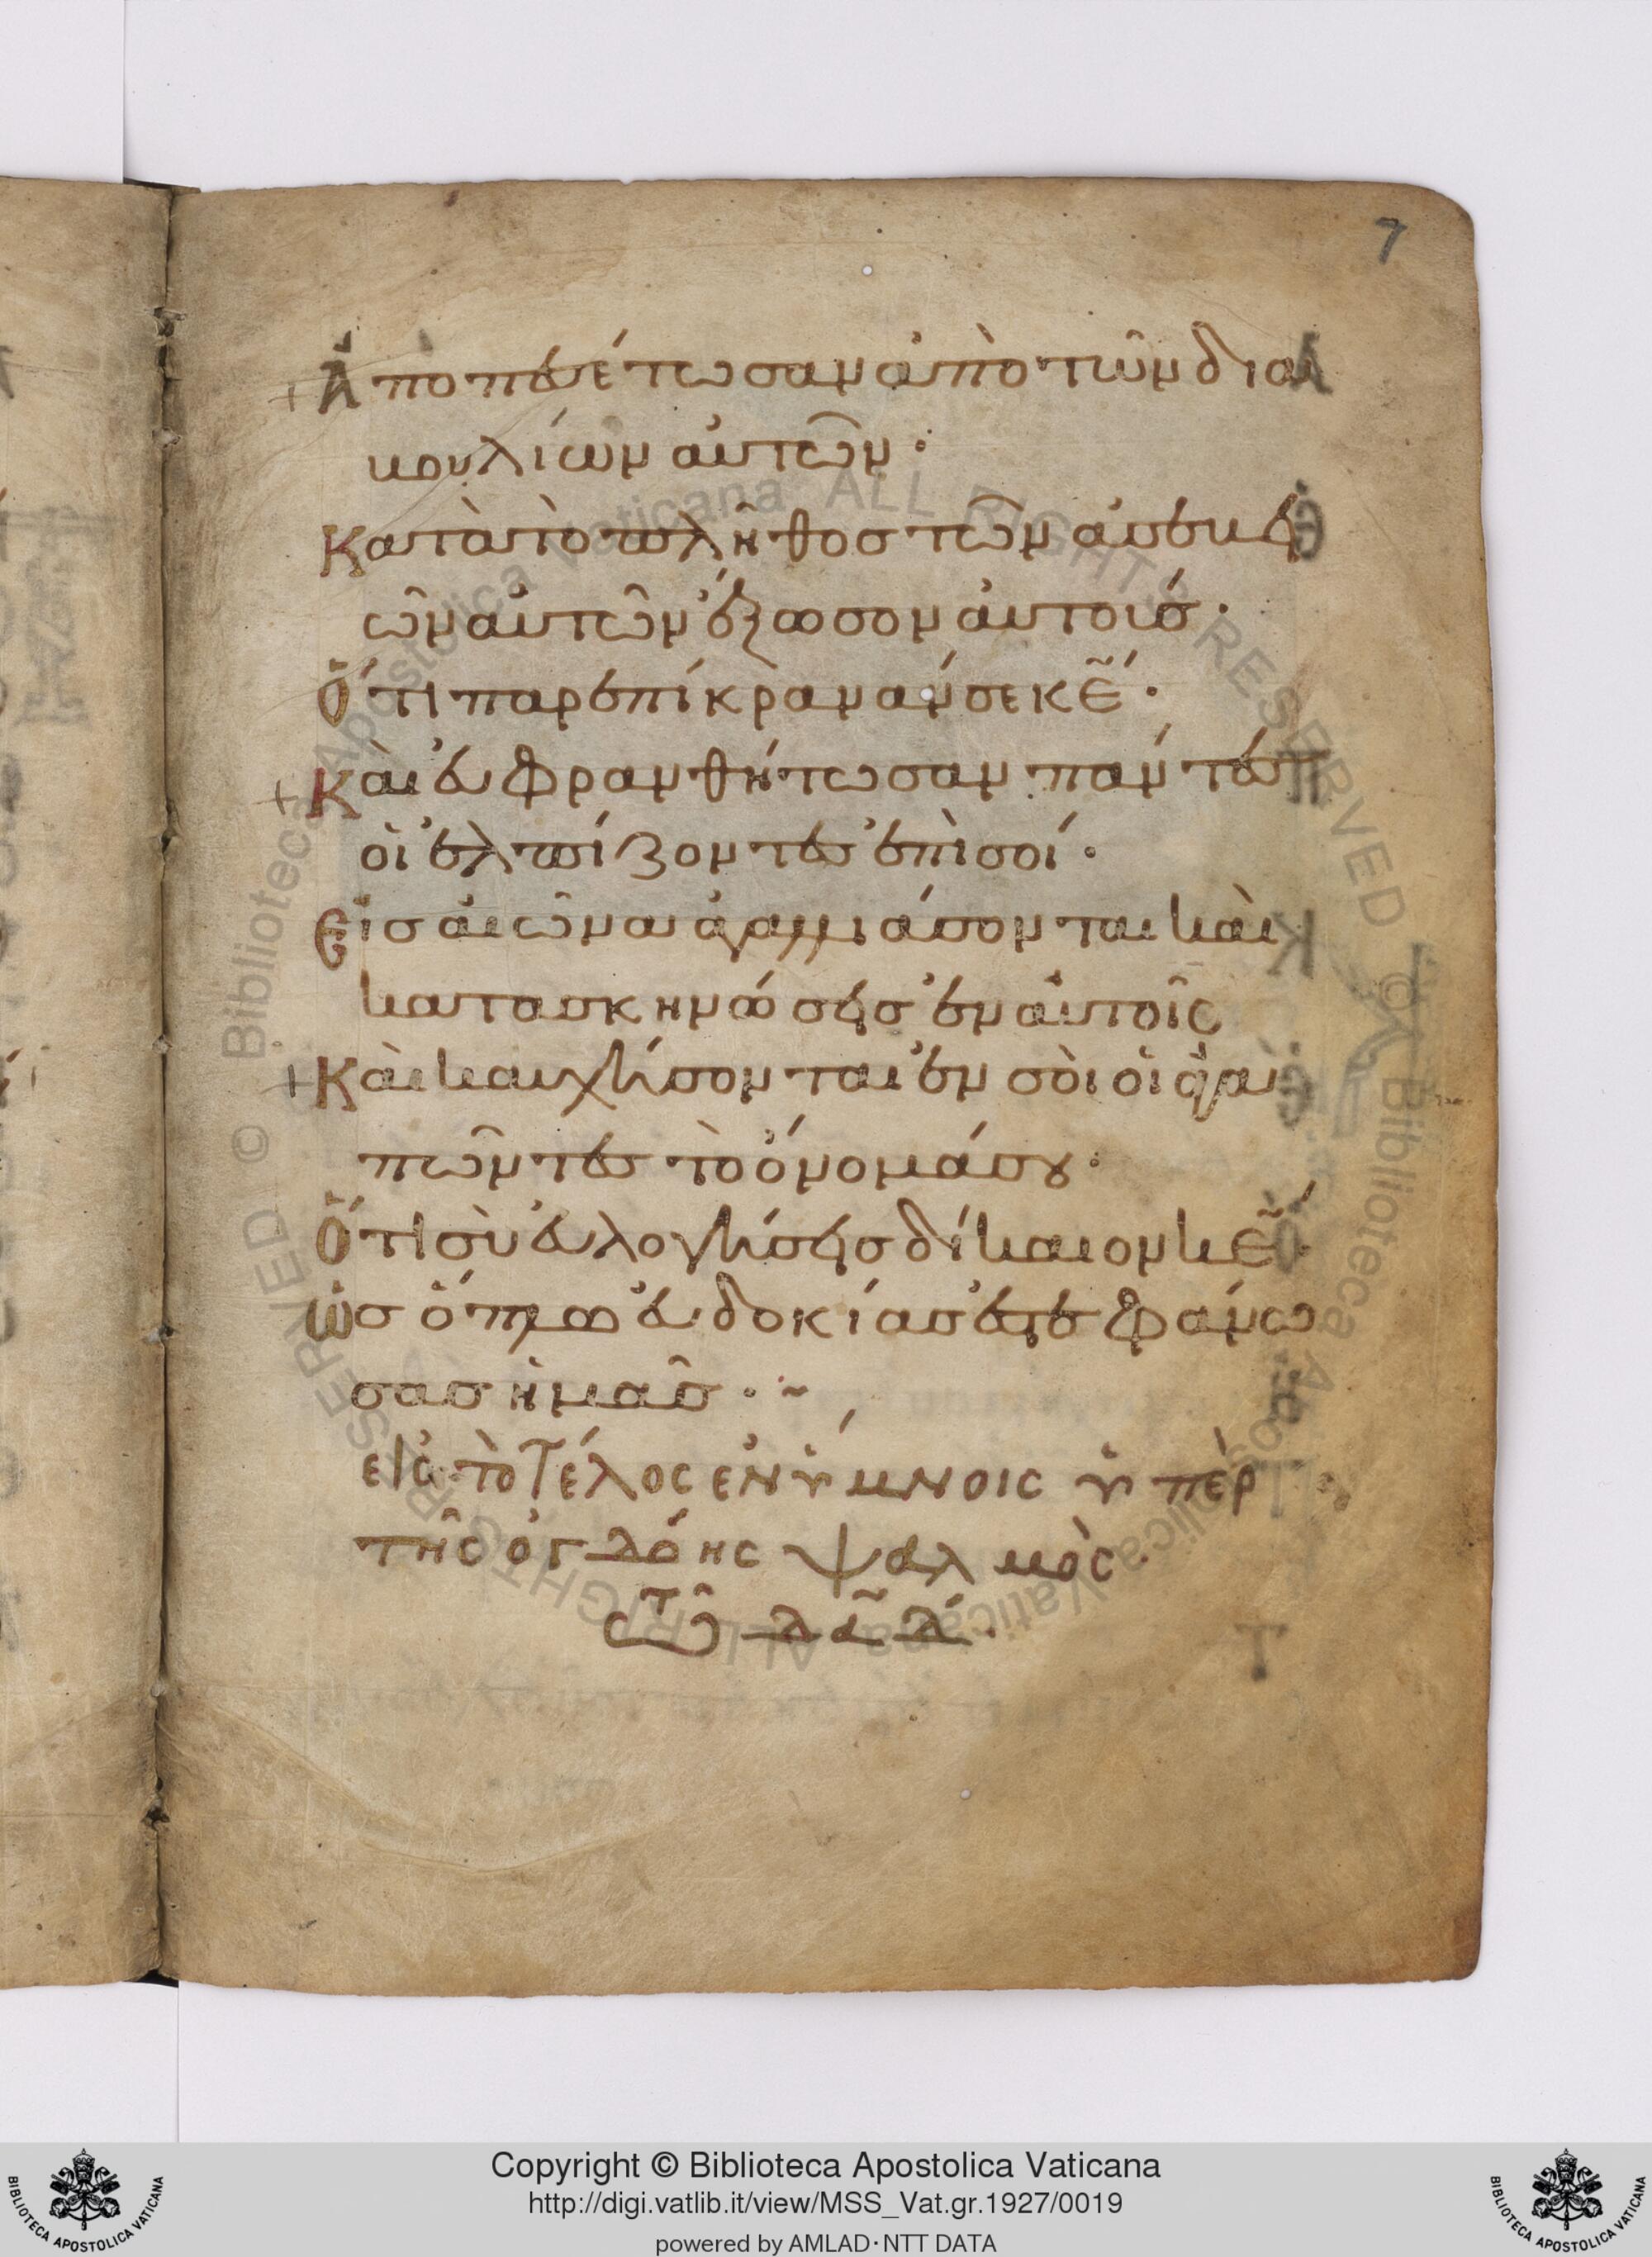 7
Ἀποπεσέτωσαν ἀπὸ τῶν δια
βουλίων αὐτῶν·
Κατὰ τὸ πλῆθος τῶν ἀσεβει
ῶν αὐτῶν ἔξωσον αὐτούς·
Ὅτι παρεπίκρανάν σε κε·
Καὶ εὐφρανθήτωσαν πάντες
οἱ ἐλπίζοντες ἐπὶ σοί·
Εἰς αἰῶνα ἀγαλλιάσονται καὶ
κατασκηνώσεις ἐν αὐτοῖς
Καὶ καυχήσονται ἐν σοὶ οἱ ἀγα
πῶντες τὸ ὄνομά σου·
Ὅτι σὺ εὐλογήσεις δίκαιον κε·
Ὡς ὅπλῳ εὐδοκίας ἐστεφάνω
σας ἡμᾶς·~
εἰς τὸ τέλος ἐν ὕμνοις ὑπὲρ
τῆς ὀγδόης ψαλμὸς
τῶ δαδ·
Copyright © Biblioteca Apostolica Vaticana
http://digi.vatlib.it/view/MSS_Vat.gr.1927/0019
powered by AMLAD·NTT DATA
BIBLIOTECA APOSTOLICA VATICANA
BIBLIOTECA APOSTOLICA VATICANA